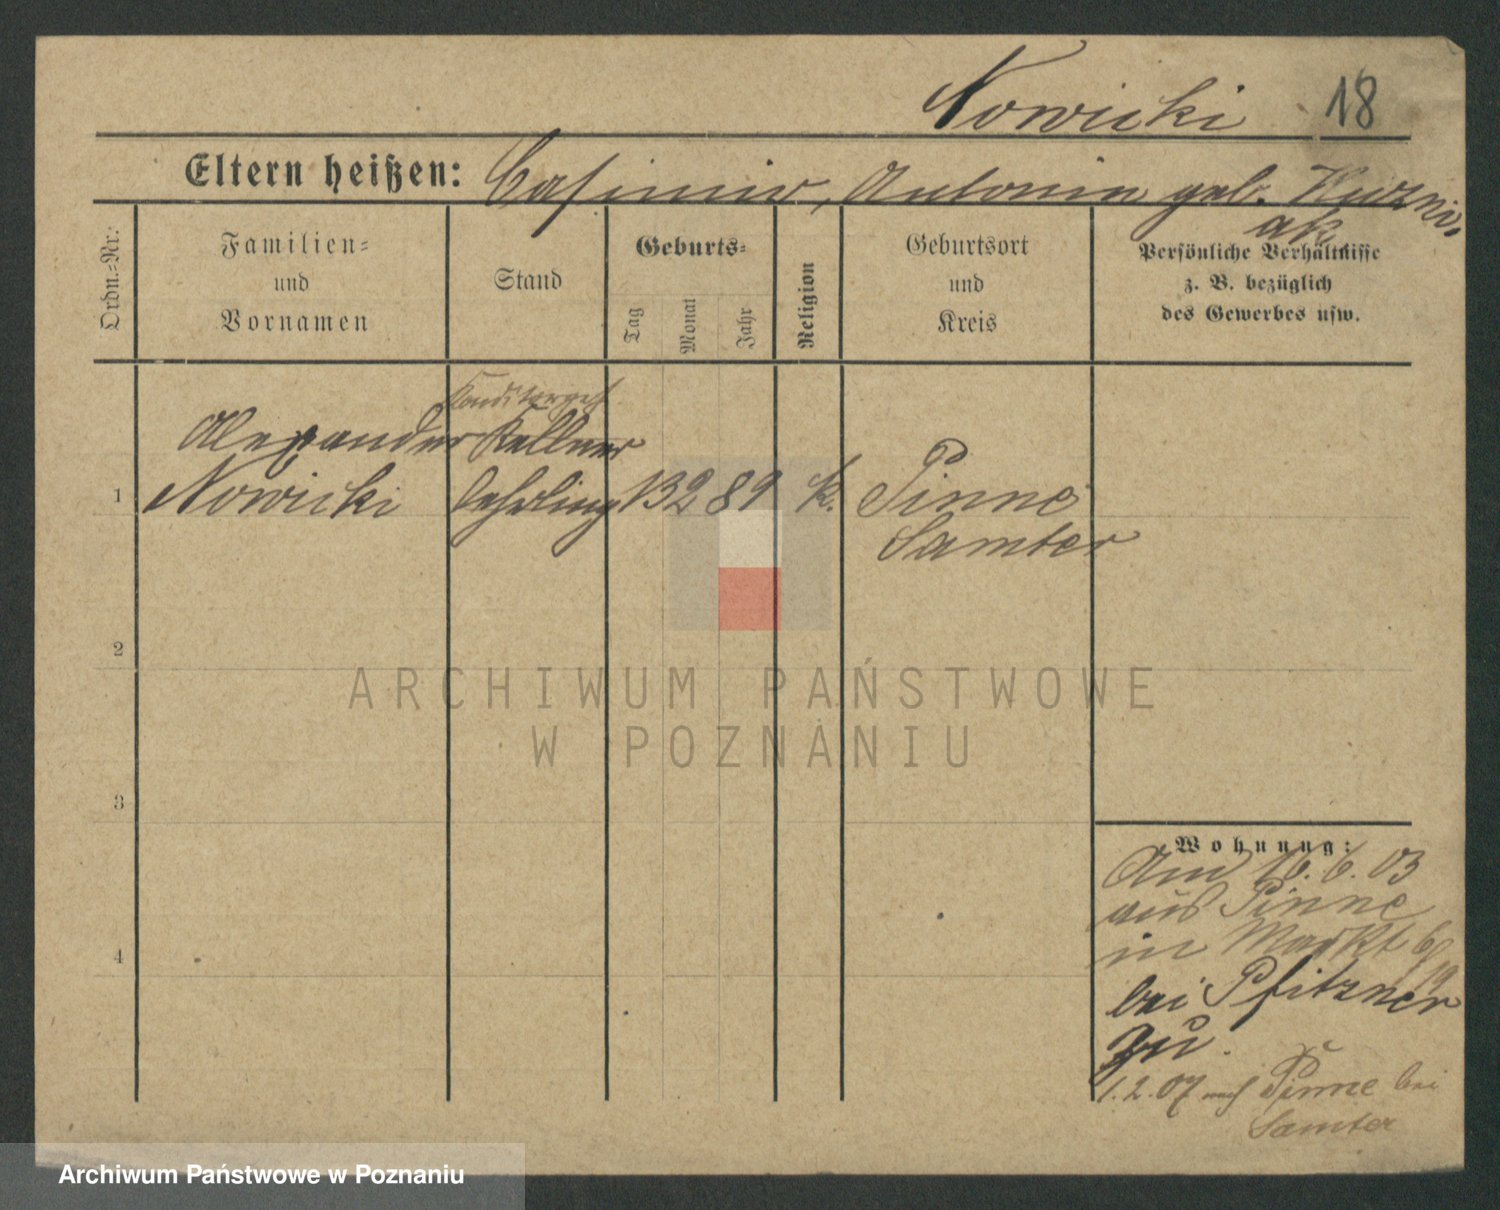 Nowicki 18
Eltern heißen: Casimir, Antonin geb. Kuzni-
ak.
Ordn.=Nr.:
Familien=
und
Vornamen
Stand
Geburts=
Tag
Monat
Jahr
Religion
Geburtsort
und
Kreis
Persönliche Verhältnisse
z. B. bezüglich
des Gewerbes usw.
Konditorgeh.
Alexander Kellner
1 Nowicki lehrling 13 2 89 k. Pinne
Samter
2
ARCHIWUM PAŃSTWOWE
W POZNANIU
3
Wohnung:
Am 16.6.03
aus Pinne
in Markt 6
4
bei Pfitzner
zu.
1.2.07 nach Pinne bei
Samter
Archiwum Państwowe w Poznaniu